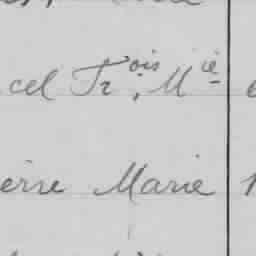 cel Fr.ois Mie
erre Marie